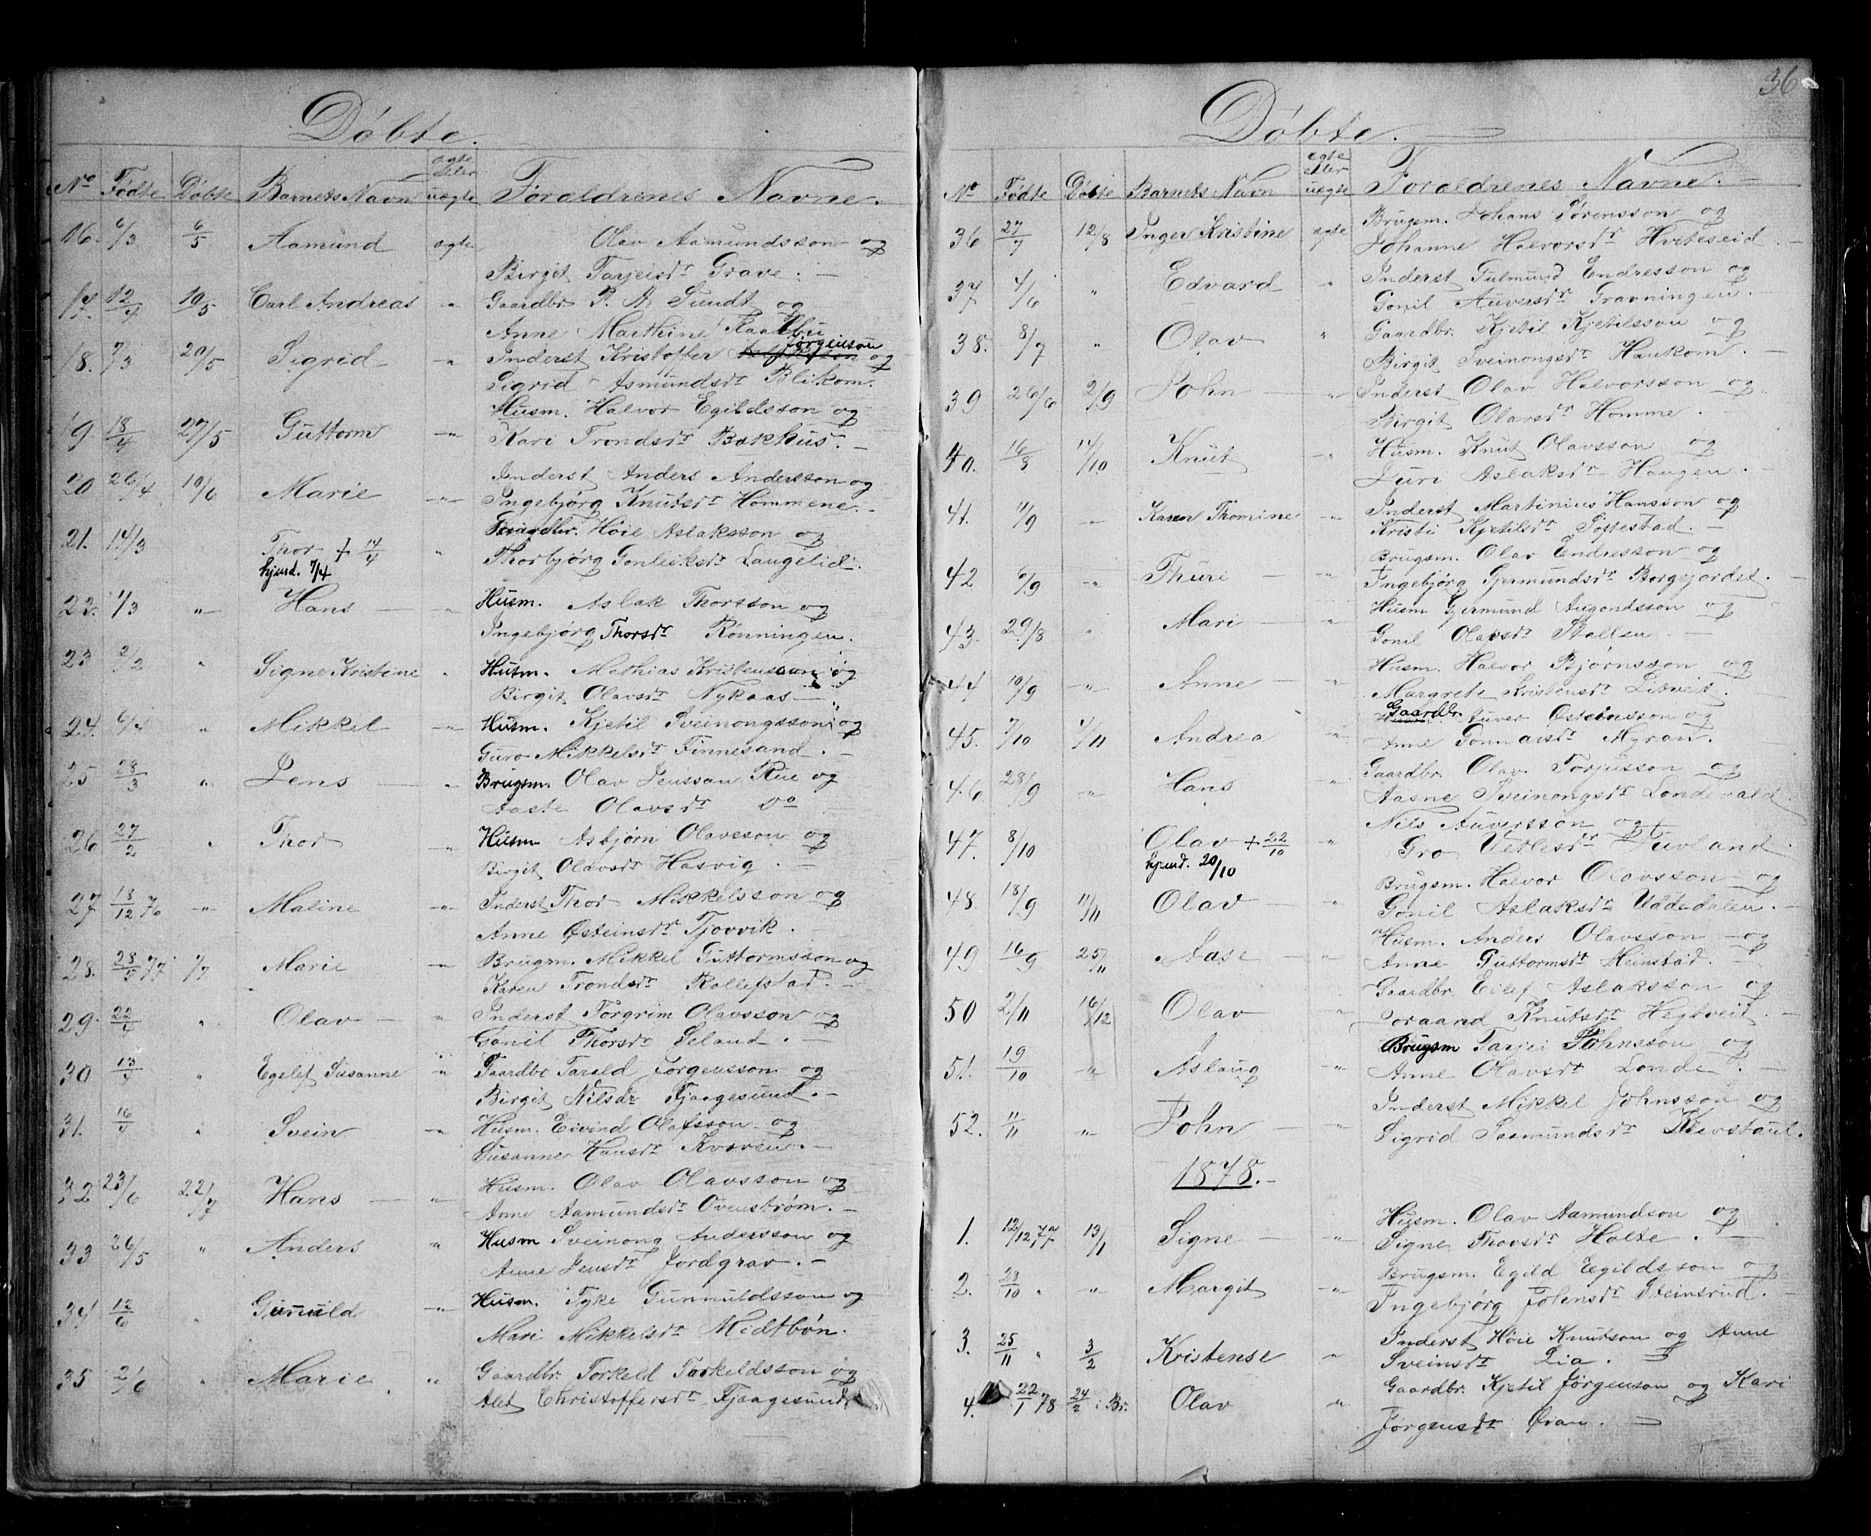 Døbte.
No Fødte Døbte Barnets Navn ægte eller uægte Forældrenes Navne.
16. 6/3 6/5 Aamund ægte Olav Aamundsson og
Birgit Tarjeisdr Grave. —
17. 12/4 10/5 Carl Andreas " Gaardbr. P. A. Sundt og
Anne Marthine Flaatbu
18. 7/3 20/5 Sigrid " Inderst Kristoffer Jørgenson og
Sigrid Asmundsdr Blikom.
19 18/4 27/5 Guttorm " Husm. Halvor Egildsson og
Kari Trondsdr Bakhus. —
20 26/4 10/6 Marie " Inderst Anders Andersson og
Ingebjørg Knutsdr Hommene. —
21. 14/3 Thor + 14/4 " Høie Aslaksson og
hjemd. 7/4 Thorbjørg Gonleiksdr Langelid. —
22. 1/3 " Hans — " Husm. Aslak Thorsson og
Ingebjørg Thorsdr Rønningen.
23 2/2 " Signe Kristine " Husm. Mathias Kristensson og
Birgit Olavsdr Nykaas —
24. 6/4 " Mikkel " Husm. Kjetil Sveinongsson og
Guro Mikkelsdr Finnesand. —
25 28/3 " Jens — " Brugsm. Olav Jensson Rue og
Aaste Olavsdr do
26 27/2 " Thor " Husm Asbjørn Olavsson og
Birgit Olavsdr Hasvig. —
27 18/12 76 " Maline " Inderst Thor Mikkelsson og
Anne Østeinsdr Tjovvik. —
28. 28/5 77 1/7 Marie " Brugsm. Mikkel Guttormsson og
Karen Trondsdr Rollefstad. —
29. 22/4 " Olav — " Inderst Torgrim Olavsson og
Gonil Thorsdr Seland. —
30 13/4 " Egelef Susanne " Gaardbr Tarald Jørgensson og
Birgit Nilsdr Fjaagesund. —
31. 16/4 " Svein " Husm. Eivind Olafsson og
Susanne Hansdr Kvæven. —
32 23/6 22/7 Hans — " Husm. Olav Olavsson og
Anne Aamundsdr Ovenstrøm. —
33 26/5 " Anders " Husm Sveinong Andersson og
Anne Jensdr Jordgrav. —
34 12/6 " Gunuld " Husm. Tyke Gunnuldsson og
Mari Mikkelsdr Midtbøn.
35 2/6 " Marie " Gaardbr. Torkeld Torkeldsson og
Alet Christoffersdr Fjaagesund
36
Døbte. —
No Fødte Døbte Barnets Navn ægte eller uægte Forældrenes Navne. —
36 27/7 12/8 Inger Kristine ægte Brugsm. Johans Sørensson og
Johanne Halvorsdr Hviteseid. —
37 4/6 " Edvard " Inderst Gulmund Endresson og
Gonil Auversdr Gravningen. —
38. 8/7 " Olav " Gaardbr. Kjetil Kjetilsson og
Birgit Sveinongsdr Haukom. —
39 26/6 2/9 John — " Inderst Olav Halvorsson og
Birgit Olavsdr Homme. —
40. 16/8 14/10 Knut " Husm. Knut Olavsson og
Juri Aslaksdr Haugen. —
41. 11/9 " Karen Thomine " Inderst Martinius Hansson og
Kristi Kjetilsdr Taftestad. —
42 6/9 " Thuri — " Brugsm. Olav Endresson og
Ingebjørg Gjermundsdr Borgejordet. —
43. 29/8 " Mari — " Husm Gjermund Augondsson og
Gonil Olavsdr Stallen —
44 10/9 " Anne — " Husm. Halvor Bjørnsson og
Margrete Kristensdr Litveit.
45. 7/10 4/11 Andrea " Gaardbr. Auver Østeinsson og
Anne Gonnarsdr Myran. —
46. 28/9 " Hans " Gaardbr Olav Torjusson og
Aasne Sveinongsdr Londevald.
47. 8/10 Olav + 22/10 " Nils Auversson og
hjemd. 20/10 Gro Vetlesdr Juvland
48. 18/9 11/11 Olav — " Brugsm. Halvor Olavsson og
Gonil Aslaksdr Uddedalen. —
49 16/9 25/11 Aase — " Husm. Anders Olavsson og
Anne Guttormsdr Heinstad. —
50 2/11 16/12 Olav " Gaardbr. Eilef Aslaksson og
Joraand Knutsdr Hegtveit. —
51. 19/10 " Aslaug " Brugsm Tarjei Johnsson og
Anne Olavsdr Londe. —
52. 11/11 " John — " Inderst Mikkel Johnsson og
Sigrid Saamundsdr Klevstaul.
1878. —
1. 12/12 77 13/1 Signe — " Husm. Olav Aamundson og
Signe Thovsdr Holte. —
2. 23/10 " " Margit " Brugsm. Egild Egildsson og
Ingebjørg Johnsdr Steinsrud. —
3. 25/11 " 3/2 Kristense " Inderst Høie Knutson og Anne
Sveinsdr Lia. —
4. 22/1 78 24/2 i Br. Olav " Gaardbr. Kjetil Jørgenson og Kari
Jørgensdr Øran. —